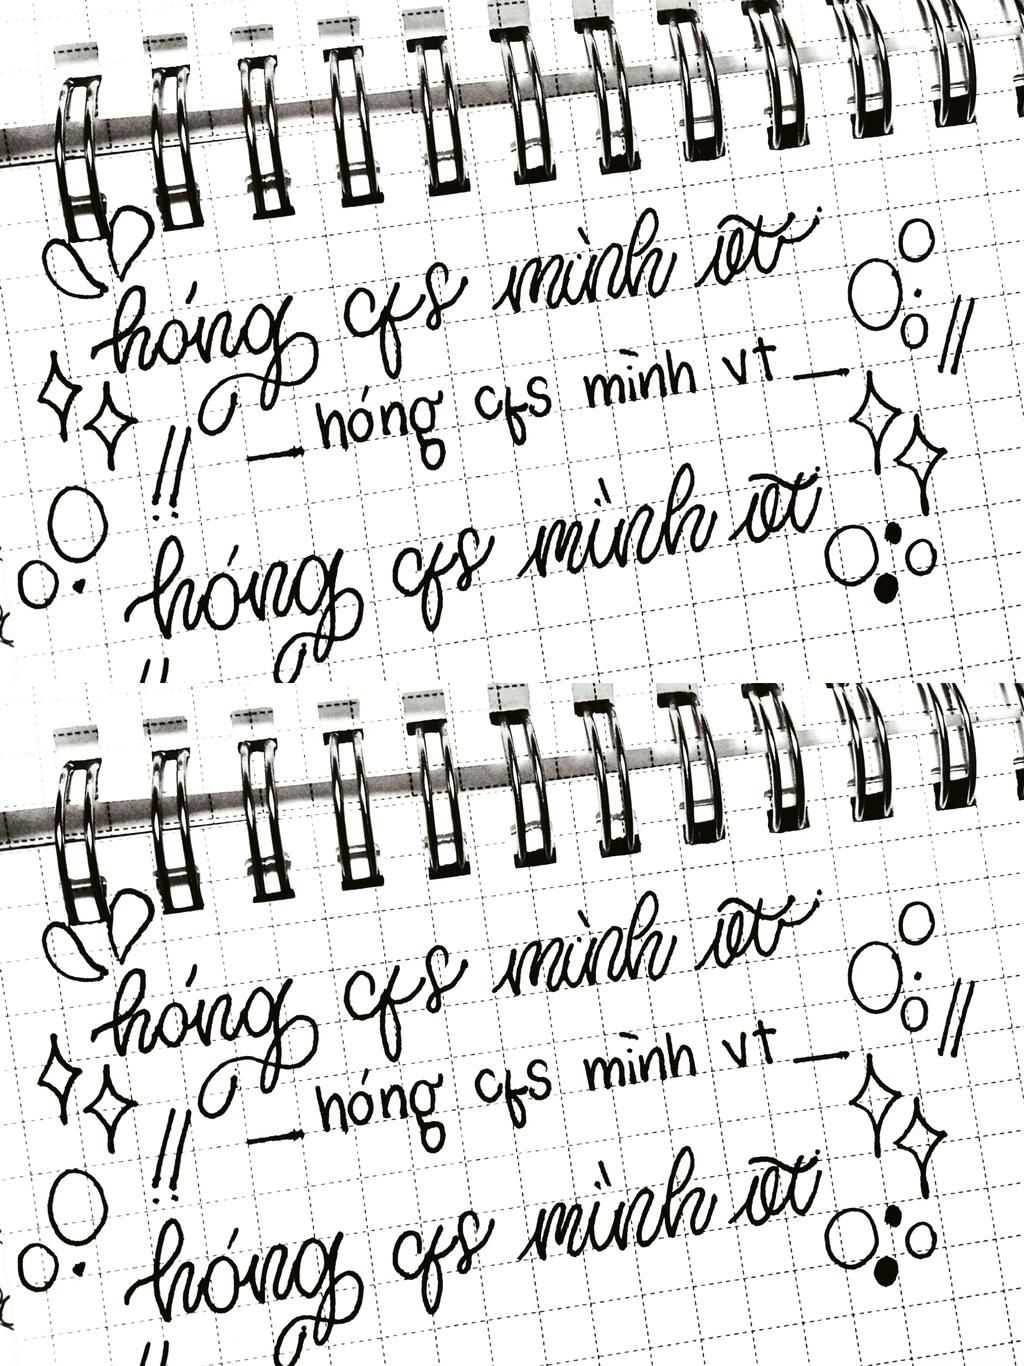 hóng cfs mình vt
hóng cfs mình vt
hóng cfs mình vt
hóng cfs mình vt
hóng cfs mình vt
hóng cfs mình vt